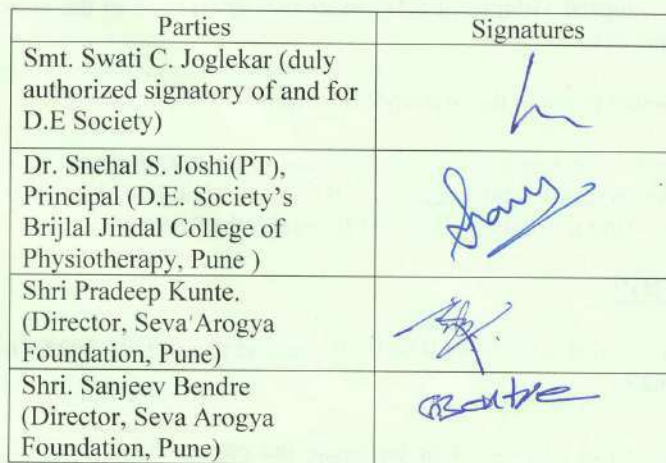 Parties
Signatures
Smt. Swati C. Joglekar (duly
authorized signatory of and for
D.E Society)
Dr. Snehal S. Joshi(PT),
Principal (D.E. Society's
Brijlal Jindal College of
Physiotherapy, Pune )
Shri Pradeep Kunte.
(Director, Seva Arogya
Foundation, Pune)
Shri. Sanjeev Bendre
(Director, Seva Arogya
Foundation, Pune)